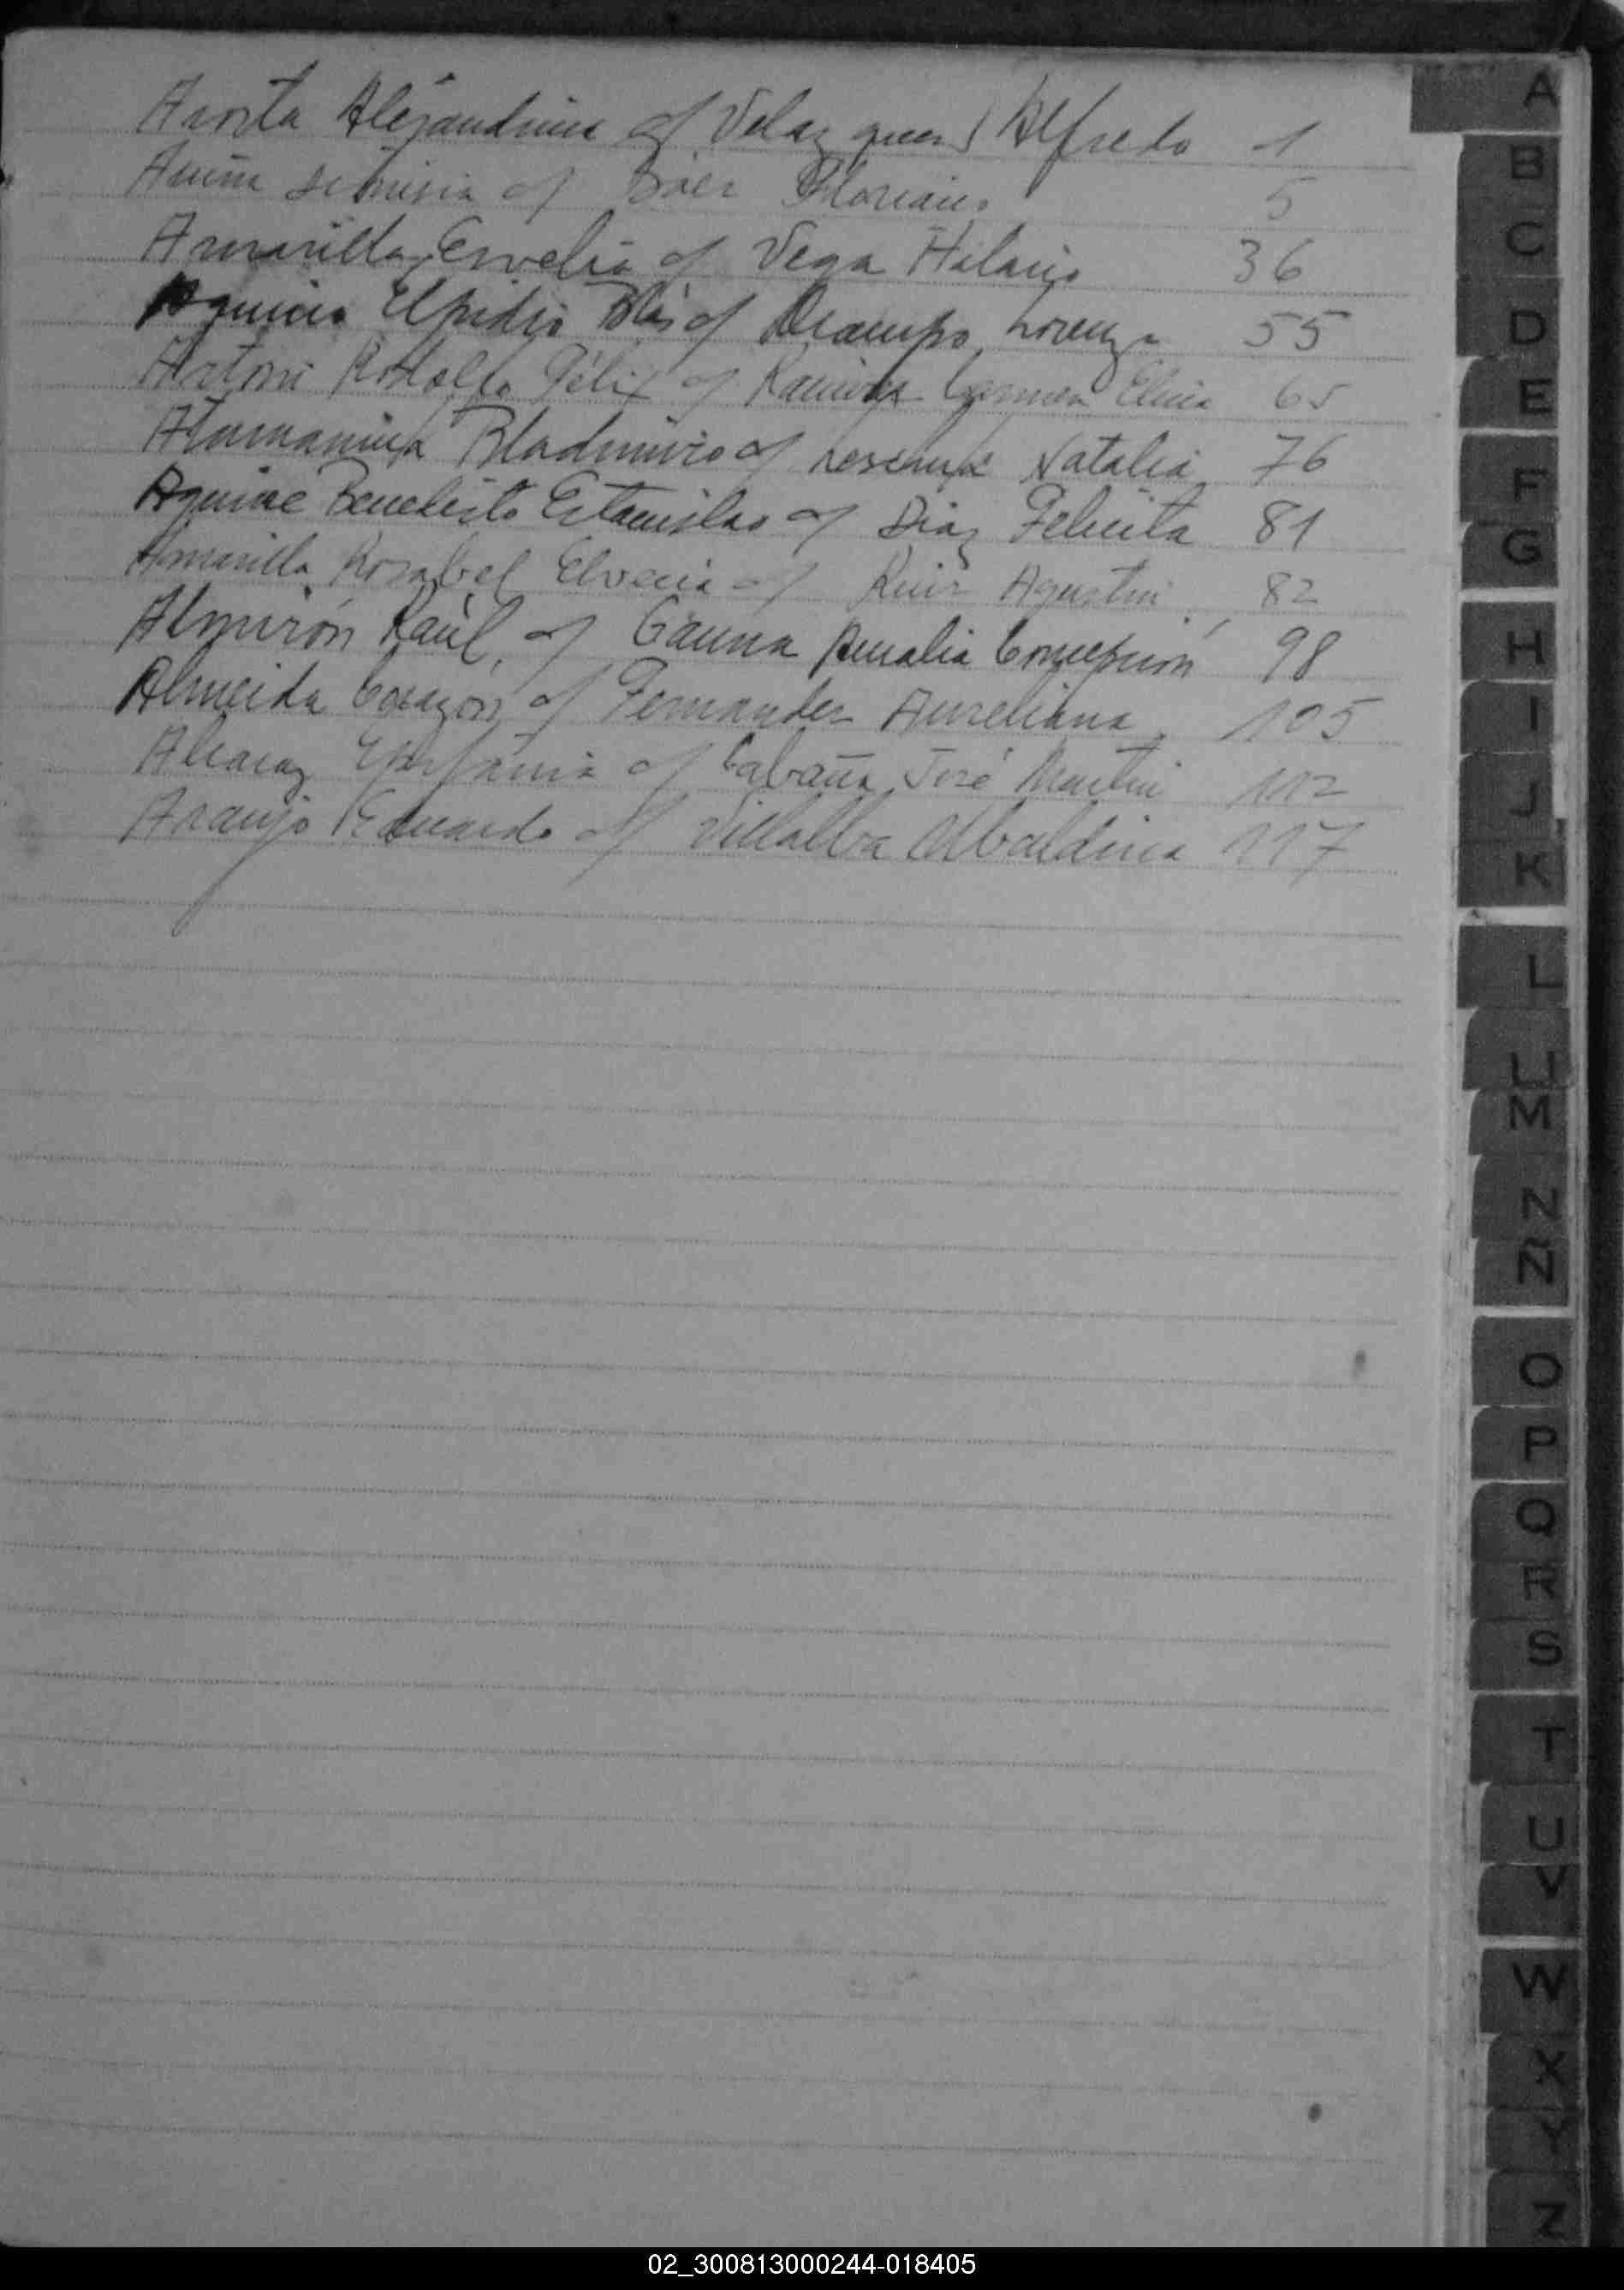 Alejandrina c/ Velazquez Alfredo 1
c/ Báez Floriano 5
Amarilla, Ervelia c/ Vega Hilario 36
Elpidio Blás c/ Ocampo Lorenza 55
Rodolfo Félix c/ Ramirez Carmen Elisa 65
Bladimiro c/ Natalia 76
Aquine Benedicto Estanislao c/ Diaz Felicita 81
Amarilla Rosabel c/ Ruiz Agustin 82
Almirón Raúl c/ Gauna Amalia Concepción 98
Almeida Corazón c/ Fernandez Aureliana 105
Alcaraz Epifania c/ Cabaña José Martin 112
Araujo Eduardo c/ Villalba Ubaldina 117
A
B
C
D
E
F
G
H
I
J
K
L
LL
M
N
Ñ
O
P
Q
R
S
T
U
V
W
X
Y
Z
02_300813000244-018405